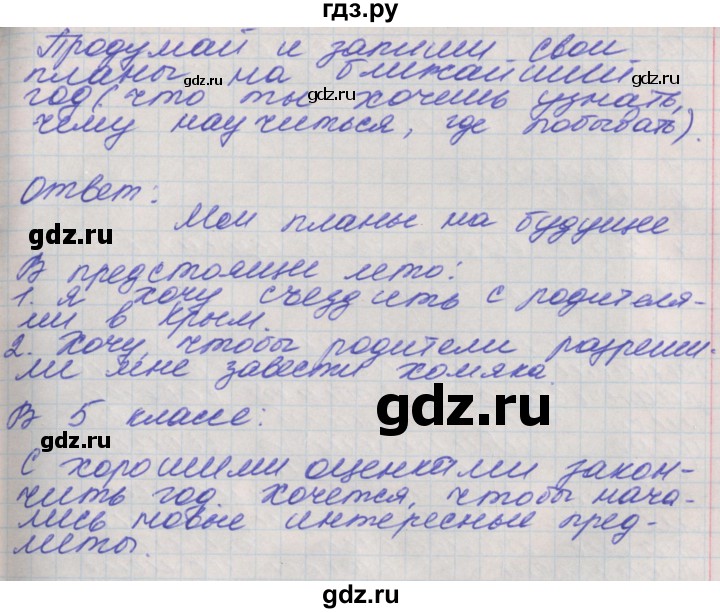 гдз.ру
Продумай и запиши свои
планы на ближайший
gdz.ru
gdz.ru
год (что ты хочешь узнать,
чему научиться, где побывать).
gdz.ru
gdz.ru
Ответ:
Мои планы на будущее
gdz.ru
В предстоящие лето:
1. Я хочу съездить с родителя-
ми в Крым.
2. Хочу, чтобы родители разреши-
ли мне завести хомяка.
gdz.ru
gdz.ru
В 5 классе:
gdz.ru
С хорошими оценками закон-
чить год. Хочется, чтобы нача-
gdz.ru
gdz.ru
лись новые интересные пред-
меты.
gdz.ru
gdz.ru